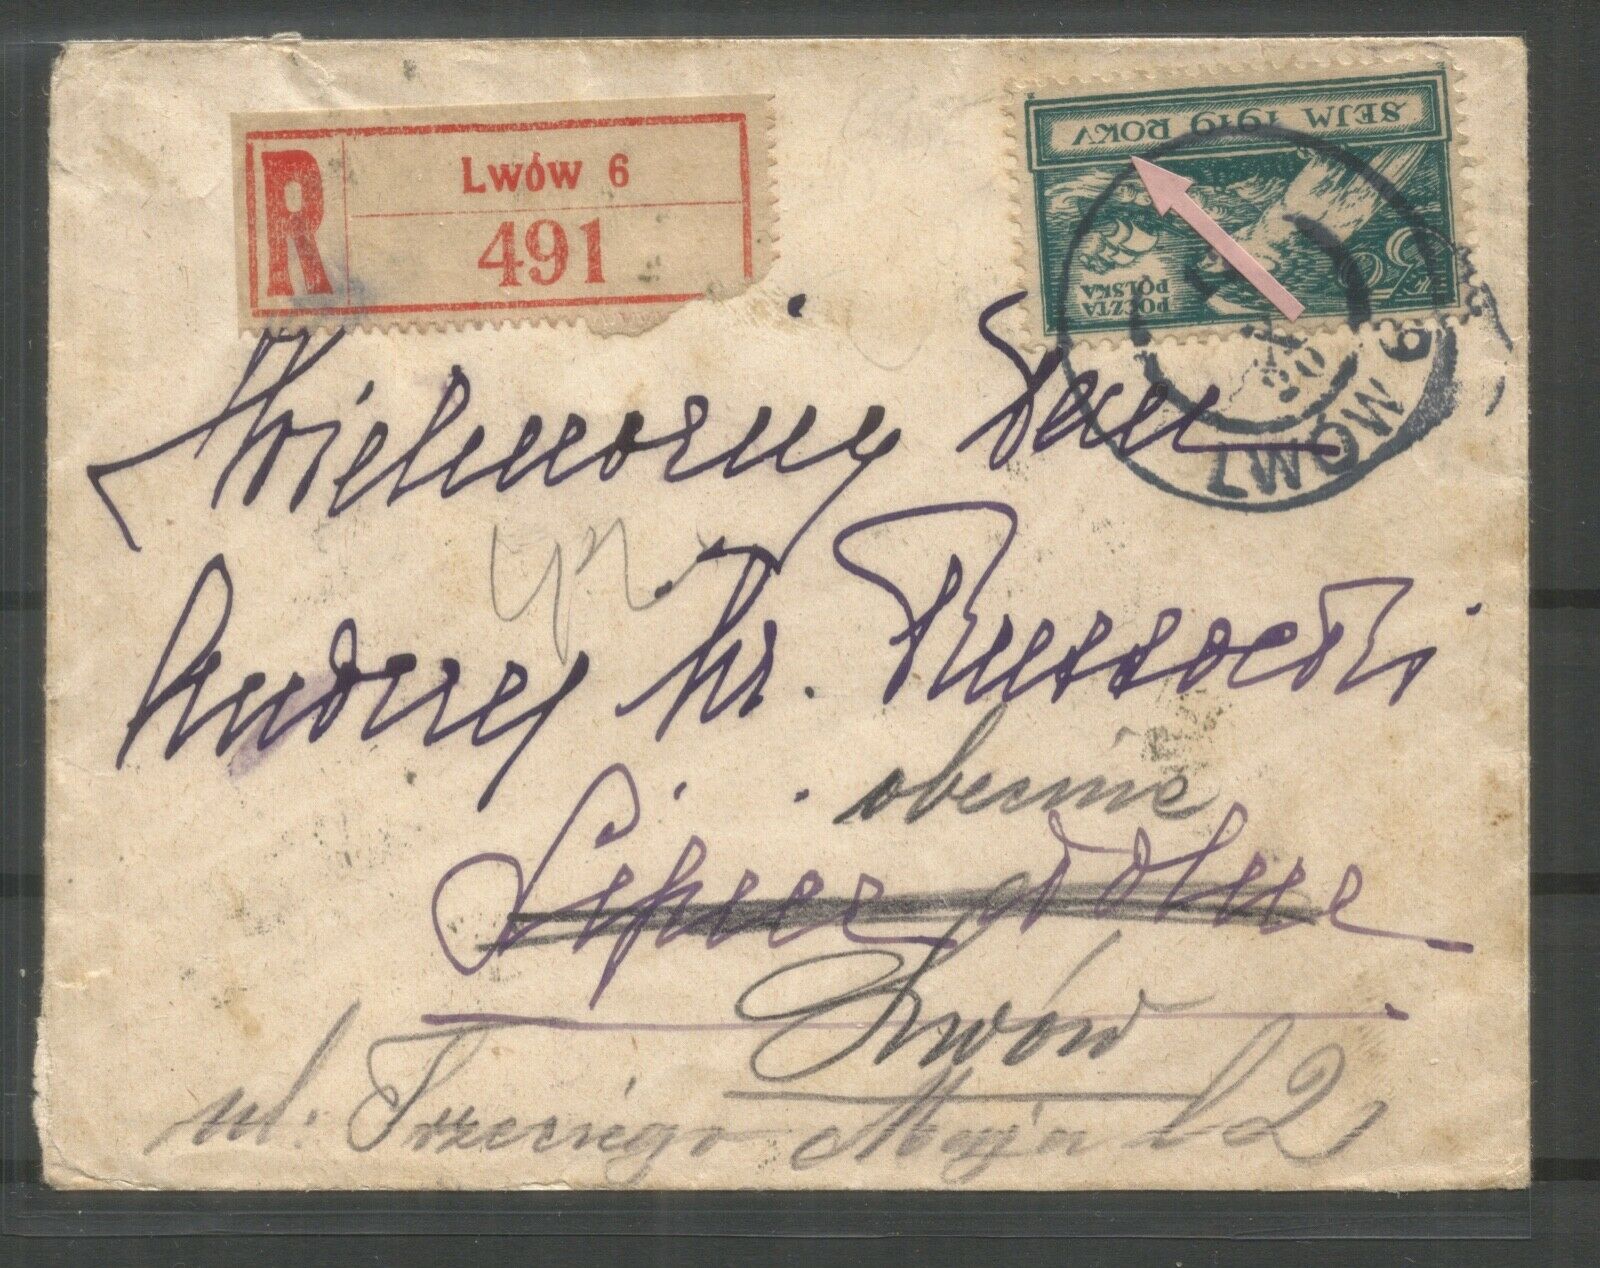 R Lwów 6
491
SEJM 1919 ROKV
POCZTA
POLSKA
LWÓW 6
20
Wielmożny Pan
Andrzej hr. Russocki
obecnie
Lipica dolna
Lwów
ul: Trzeciego Maja l 2